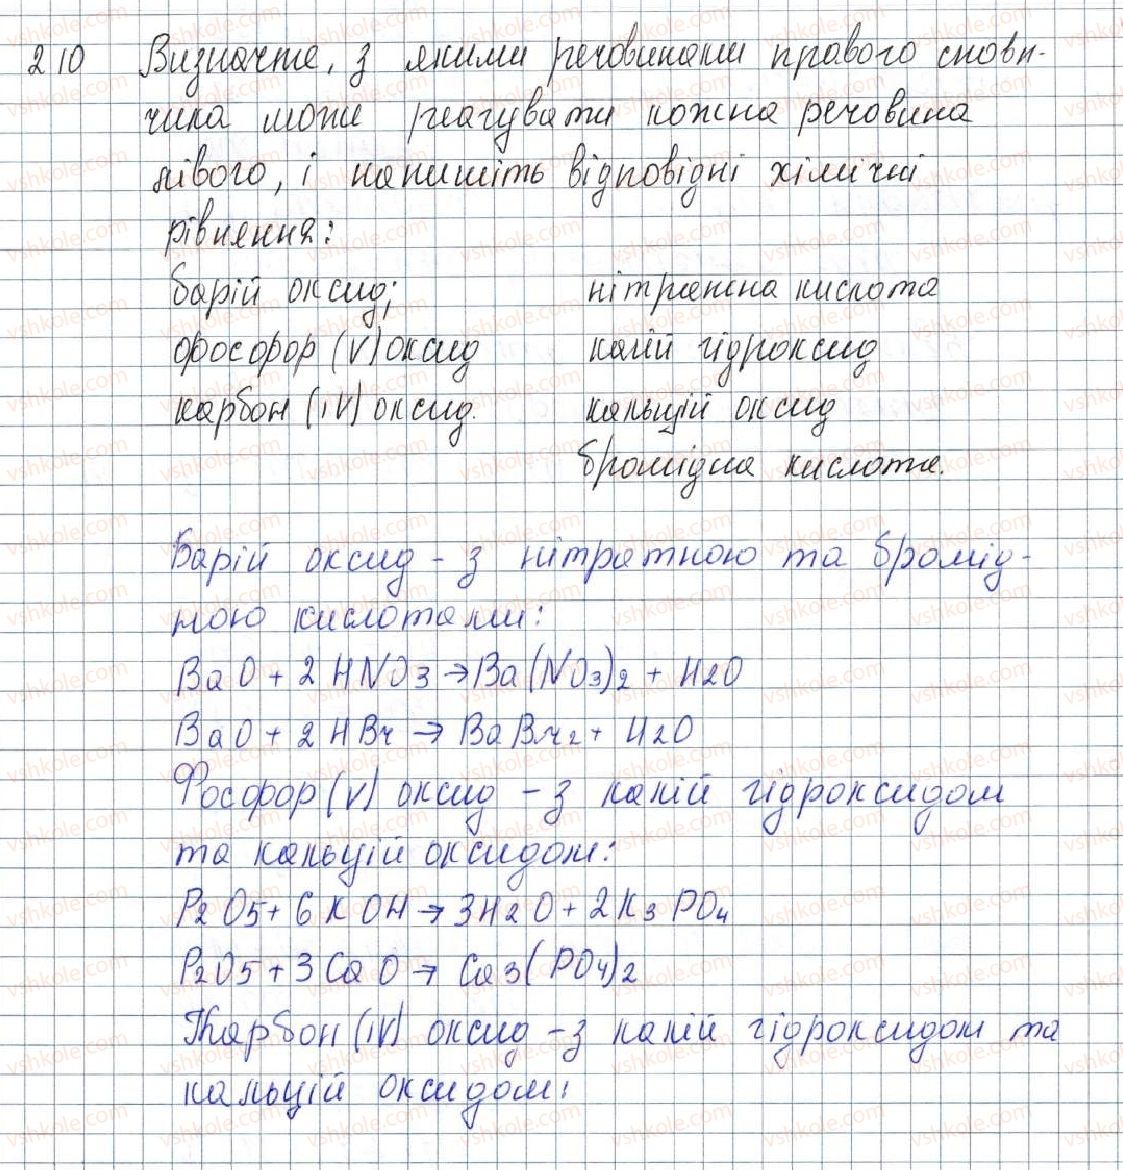 210 Визначте, з якими речовинами правого стовп-
чика може реагувати кожна речовина
лівого, і напишіть відповідні хімічні
рівняння:
барій оксид; нітратна кислота
фосфор (V) оксид калій гідроксид
карбон (IV) оксид. кальцій оксид
бромідна кислота.
Барій оксид - з нітратною та бромід-
ною кислотами:
BaO + 2HNO3 → Ba(NO3)2 + H2O
BaO + 2HBr → BaBr2 + H2O
Фосфор (V) оксид - з калій гідроксидом
та кальцій оксидом:
P2O5 + 6KOH → 3H2O + 2K3PO4
P2O5 + 3CaO → Ca3(PO4)2
Карбон (IV) оксид - з калій гідроксидом та
кальцій оксидом: